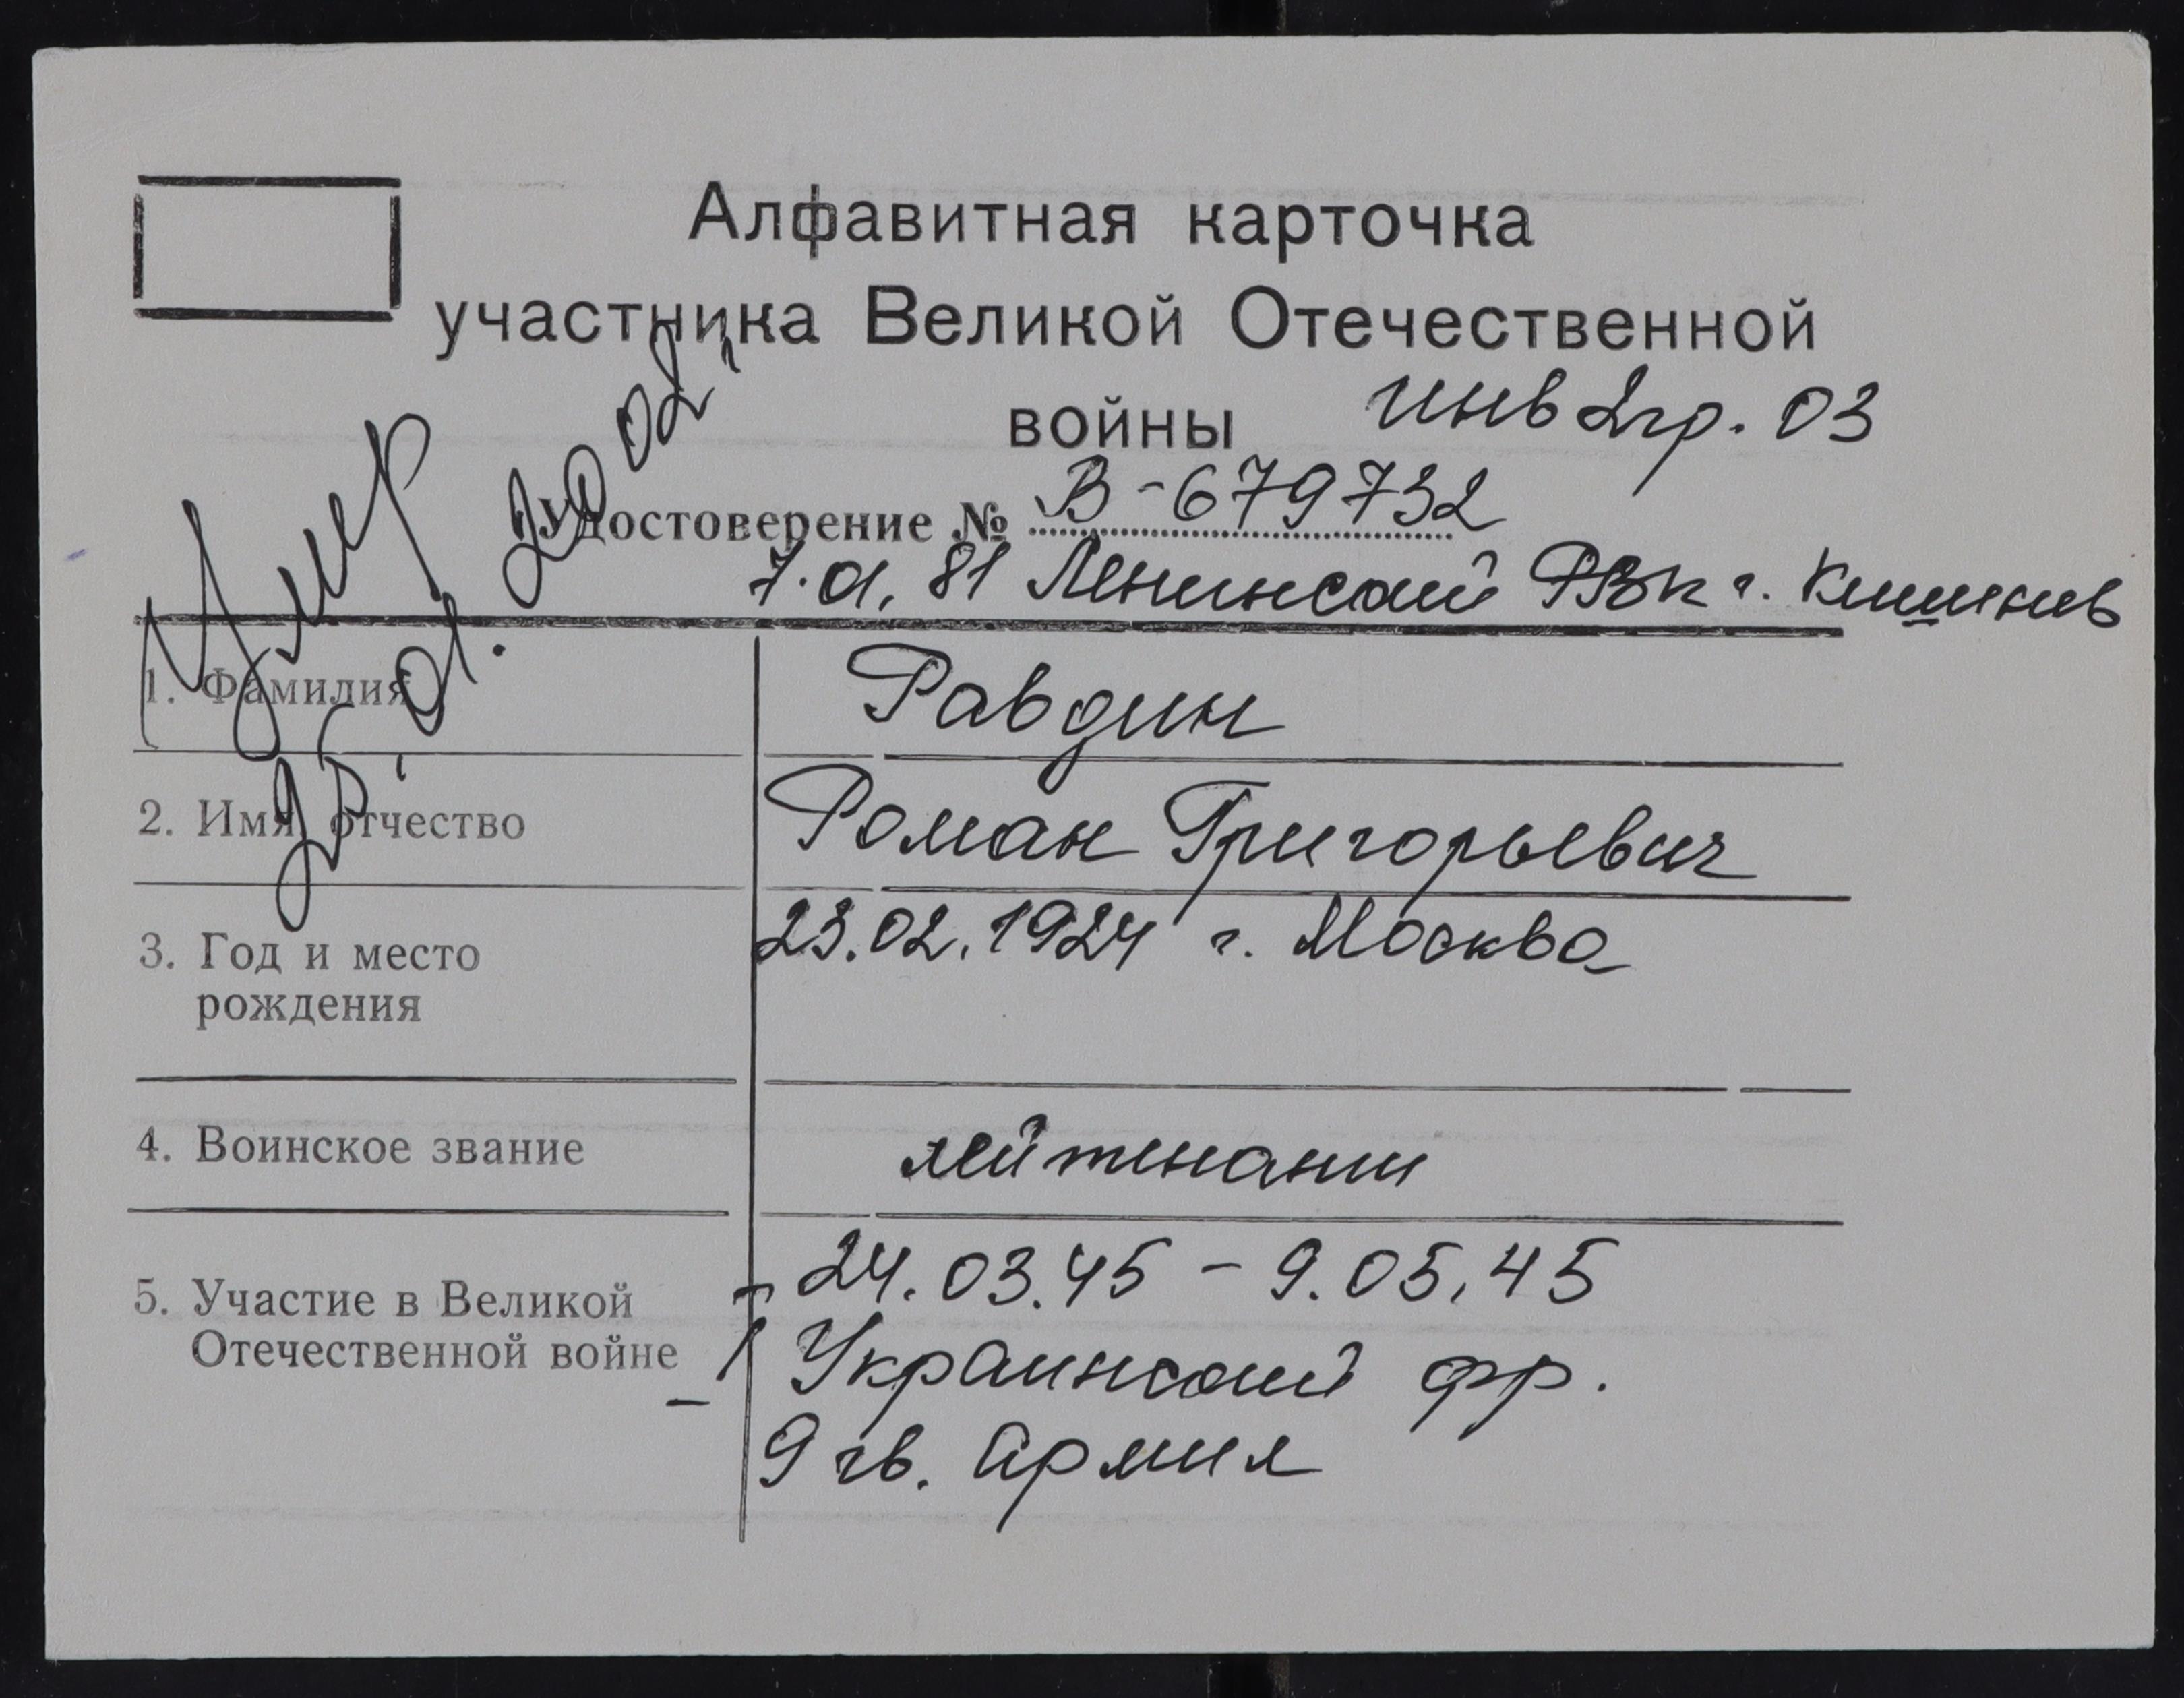 Алфавитная карточка
участника Великой Отечественной
войны инв 2 гр. 03
Удостоверение № В-679732
7.01.81 Ленинский РВК г. Кишинев
Умер
2002
1. Фамилия Равдин
2. Имя, отчество Роман Григорьевич
3. Год и место 23.02.1924 г. Москва
рождения
4. Воинское звание лейтенант
5. Участие в Великой 24.03.45 - 9.05.45
Отечественной войне Украинский фр.
9 гв. армия